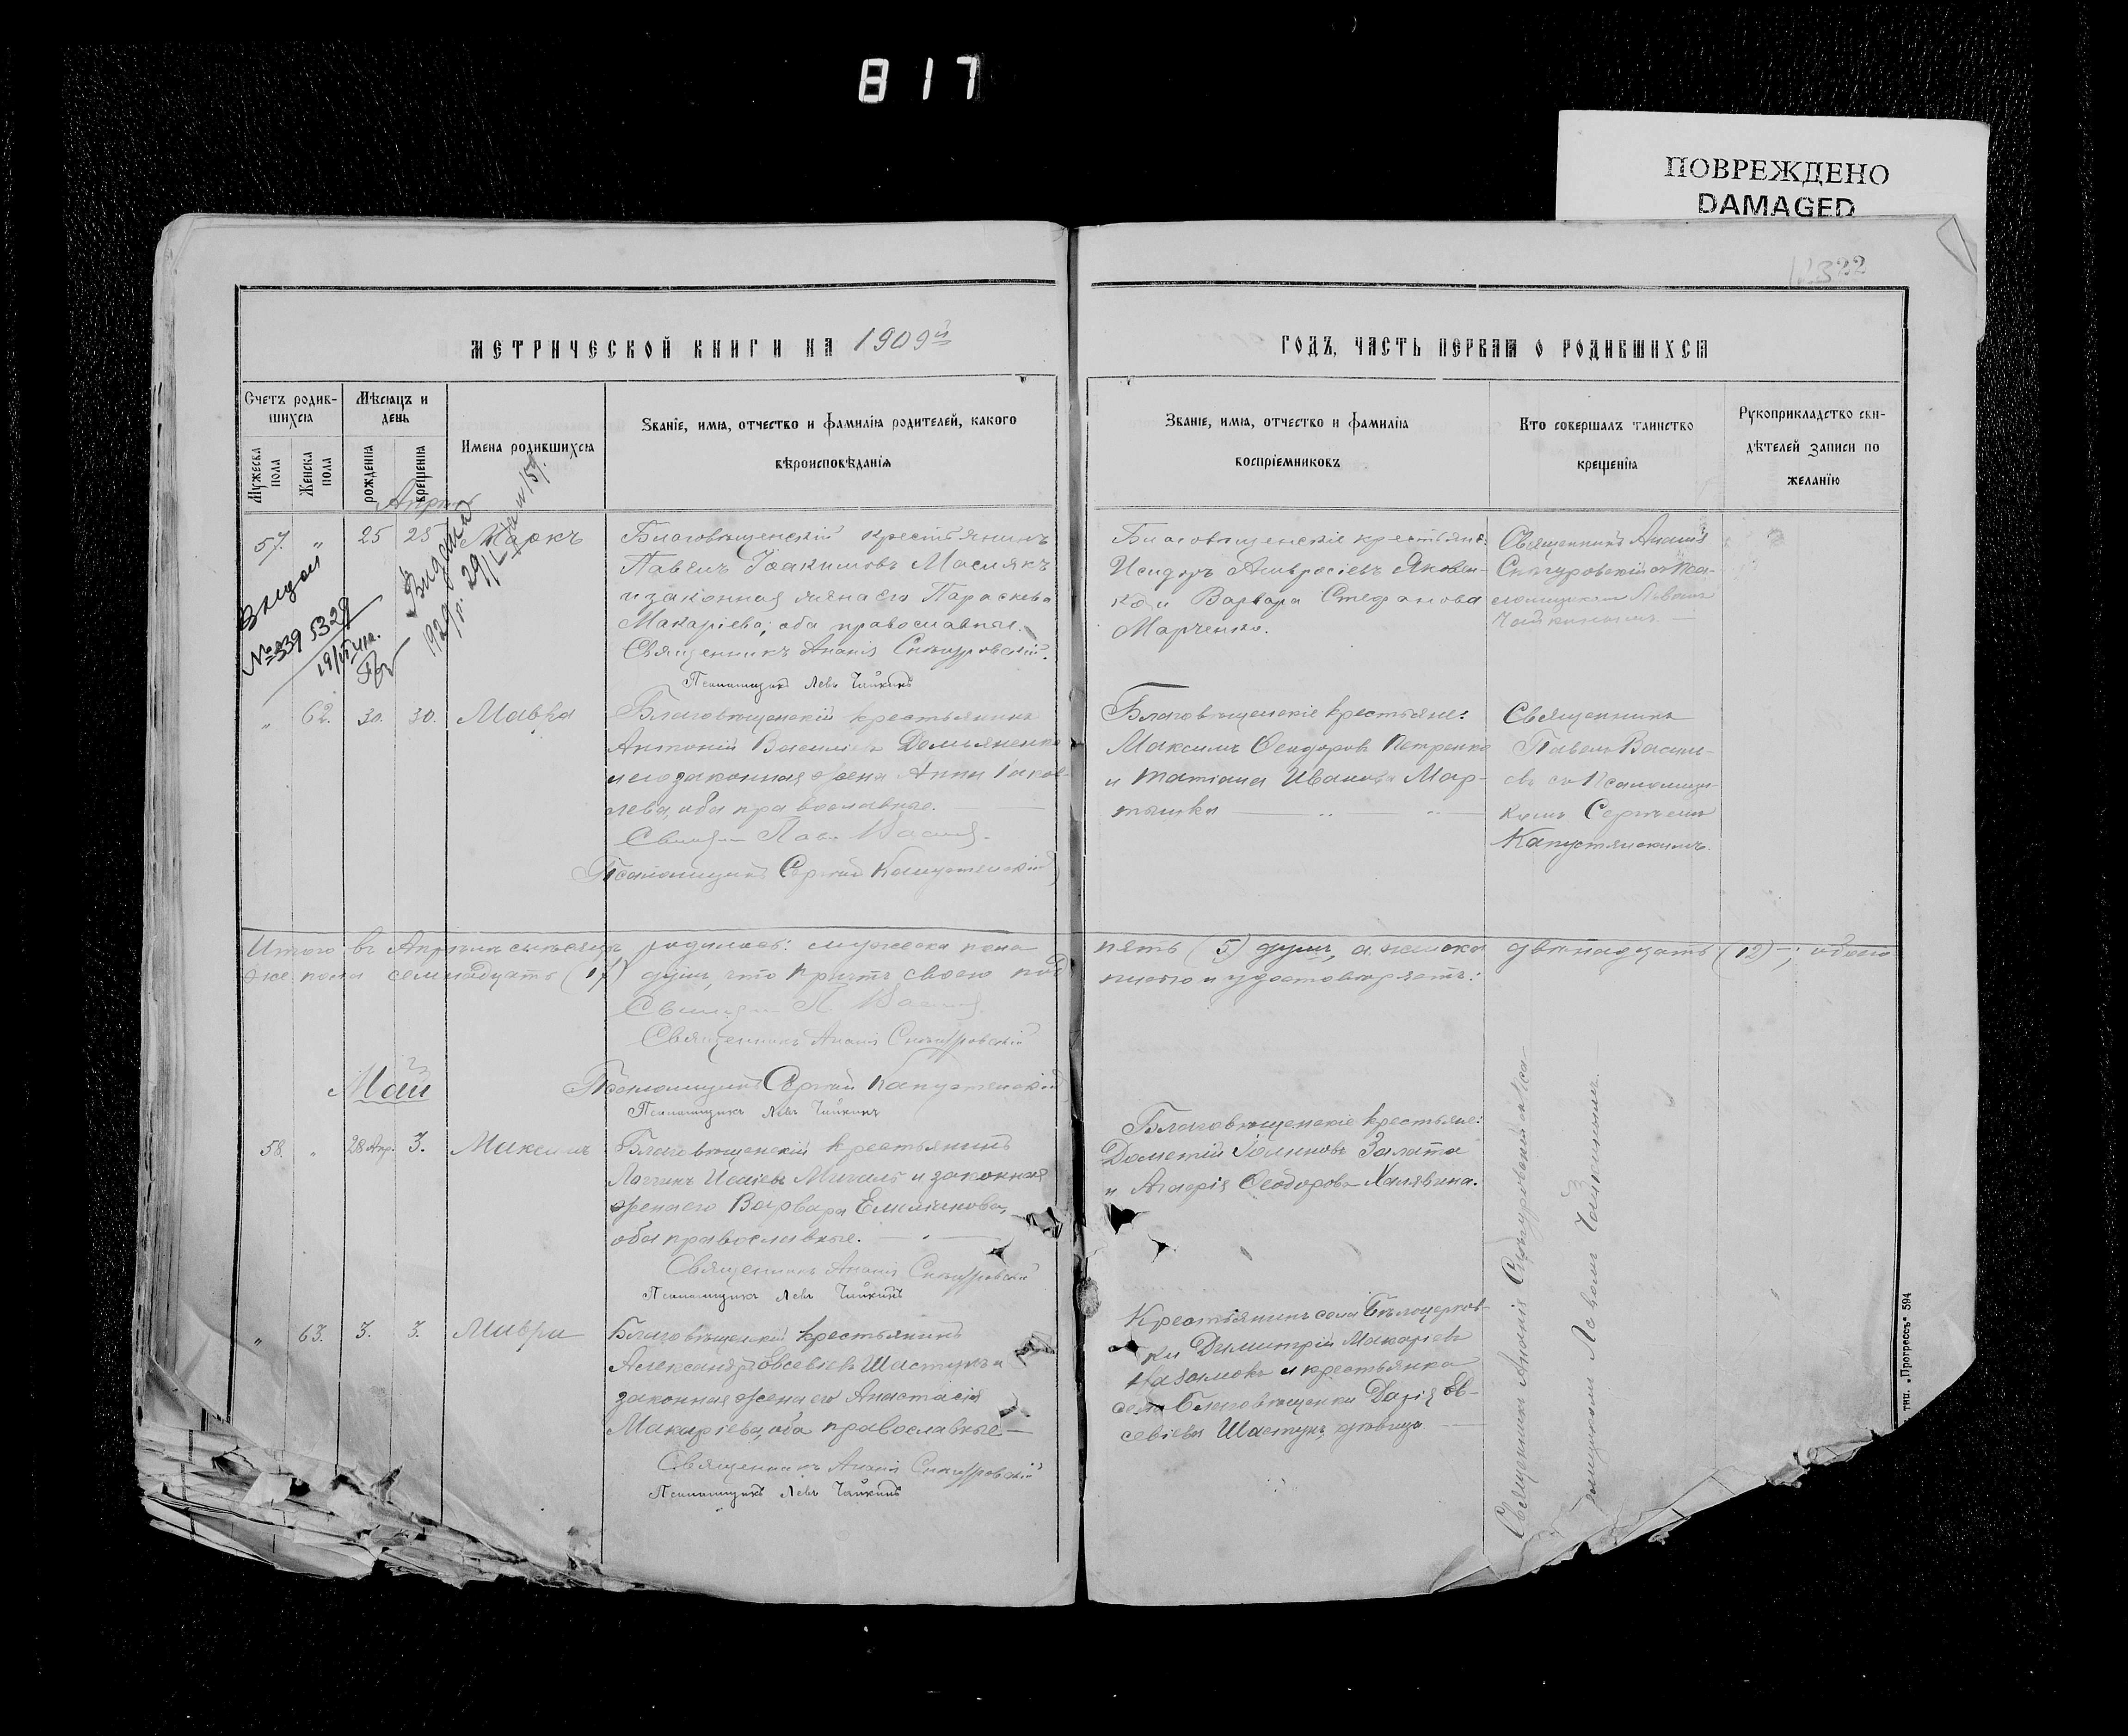 817
ПОВРЕЖДЕНО
DAMAGED
322
МЕТРИЧЕСКОЙ КНИГИ НА 1909й
ГОДЪ, ЧАСТЬ ПЕРВАЯ О РОДИВШИХСЯ
Счетъ родив-
шихся
Мужеска пола
Женска пола
Мѣсяцъ и
день
рожденія
крещенія
Имена родившихся
Званіе, имя, отчество и фамилія родителей, какого
вѣроисповѣданія
Званіе, имя, отчество и фамилія
воспріемниковъ
Кто совершалъ таинство
крещенія
Рукоприкладство сви-
дѣтелей записи по
желанію
57. " 25 25 Маркъ
№ 339
Благовѣщенскій крестьянинъ
Павелъ Іоакимовъ Маслякъ
и законная жена его Параскева
Макаріева, оба православные.
Священникъ Ананія Снѣгуровскій.
Псаломщикъ Левъ Чайкинъ
Благовѣщенскіе крестьяне:
Исидоръ Амвросіевъ Яковен-
ко и Варвара Стефанова
Марченко.
Священникъ Ананія
Снѣгуровскій съ Пса-
ломщикомъ Львомъ
Чайкинымъ
" 62. 30. 30. Мавра
Благовѣщенскій крестьянинъ
Антоній Васильевъ Демьяненко
и его законная жена Анна Іаков-
лева, оба православные.
Псаломщикъ Сергій Капустянскій
Благовѣщенскіе крестьяне:
Максимъ Ѳеодоровъ Петренко
и Татіана Иванова Мар-
тышка
Священникъ
Павелъ Васил-
съ Псаломщи-
комъ Сергѣемъ
Капустянскимъ.
Итого въ Апрѣлѣ мѣсяцѣ родилось: мужеска пола пять (5) душъ, а женска двѣнадцать (12) —; обоего
же пола семнадцать (17) душъ, что причтъ своею подписью и удостовѣряетъ:
Священникъ Ананія Снѣгуровскій
Псаломщикъ Сергій Капустянскій
Псаломщикъ Левъ Чайкинъ
Май
58. " 28 Апр. 3. Максимъ
Благовѣщенскій крестьянинъ
Логгинъ Исаіевъ Мигаль и законная
жена его Варвара Емиліанова,
оба православные.
Священникъ Ананія Снѣгуровскій
Псаломщикъ Левъ Чайкинъ
Благовѣщенскіе крестьяне:
Дометій Залата
и Ѳеодорова Халявина.
" 63. 3. 3. Мавра
Благовѣщенскій крестьянинъ
Александръ Евсевіевъ Шастунъ и
законная жена его Анастасія
Макаріева, оба православные.—
Священникъ Ананія Снѣгуровскій
Псаломщикъ Левъ Чайкинъ
Крестьянинъ села Бѣлоцерков-
ки Димитрій Макаріевъ
и крестьянка
села Благовѣщенки Дарія Ев-
севіева Шастунъ, дѣвица
Священникъ Ананія Снѣгуровскій съ Пса-
ломщикомъ Львомъ Чайкинымъ.
тип. „Прогрессъ" 594